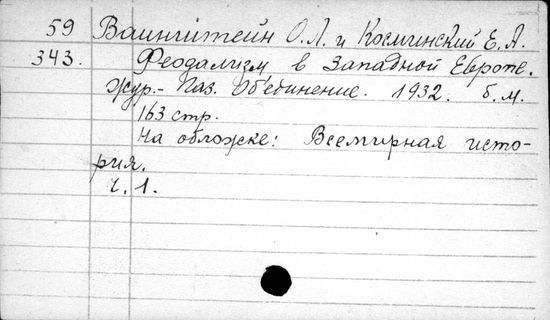 59 Ваинштейн О.Л. и Косминский Е.А.
343. Феодализм в Западной Европе.
Жур.- Газ. Объединение. 1932. б.м.
163 стр.
На обложке: Всемирная исто-
рия.
ч. 1.